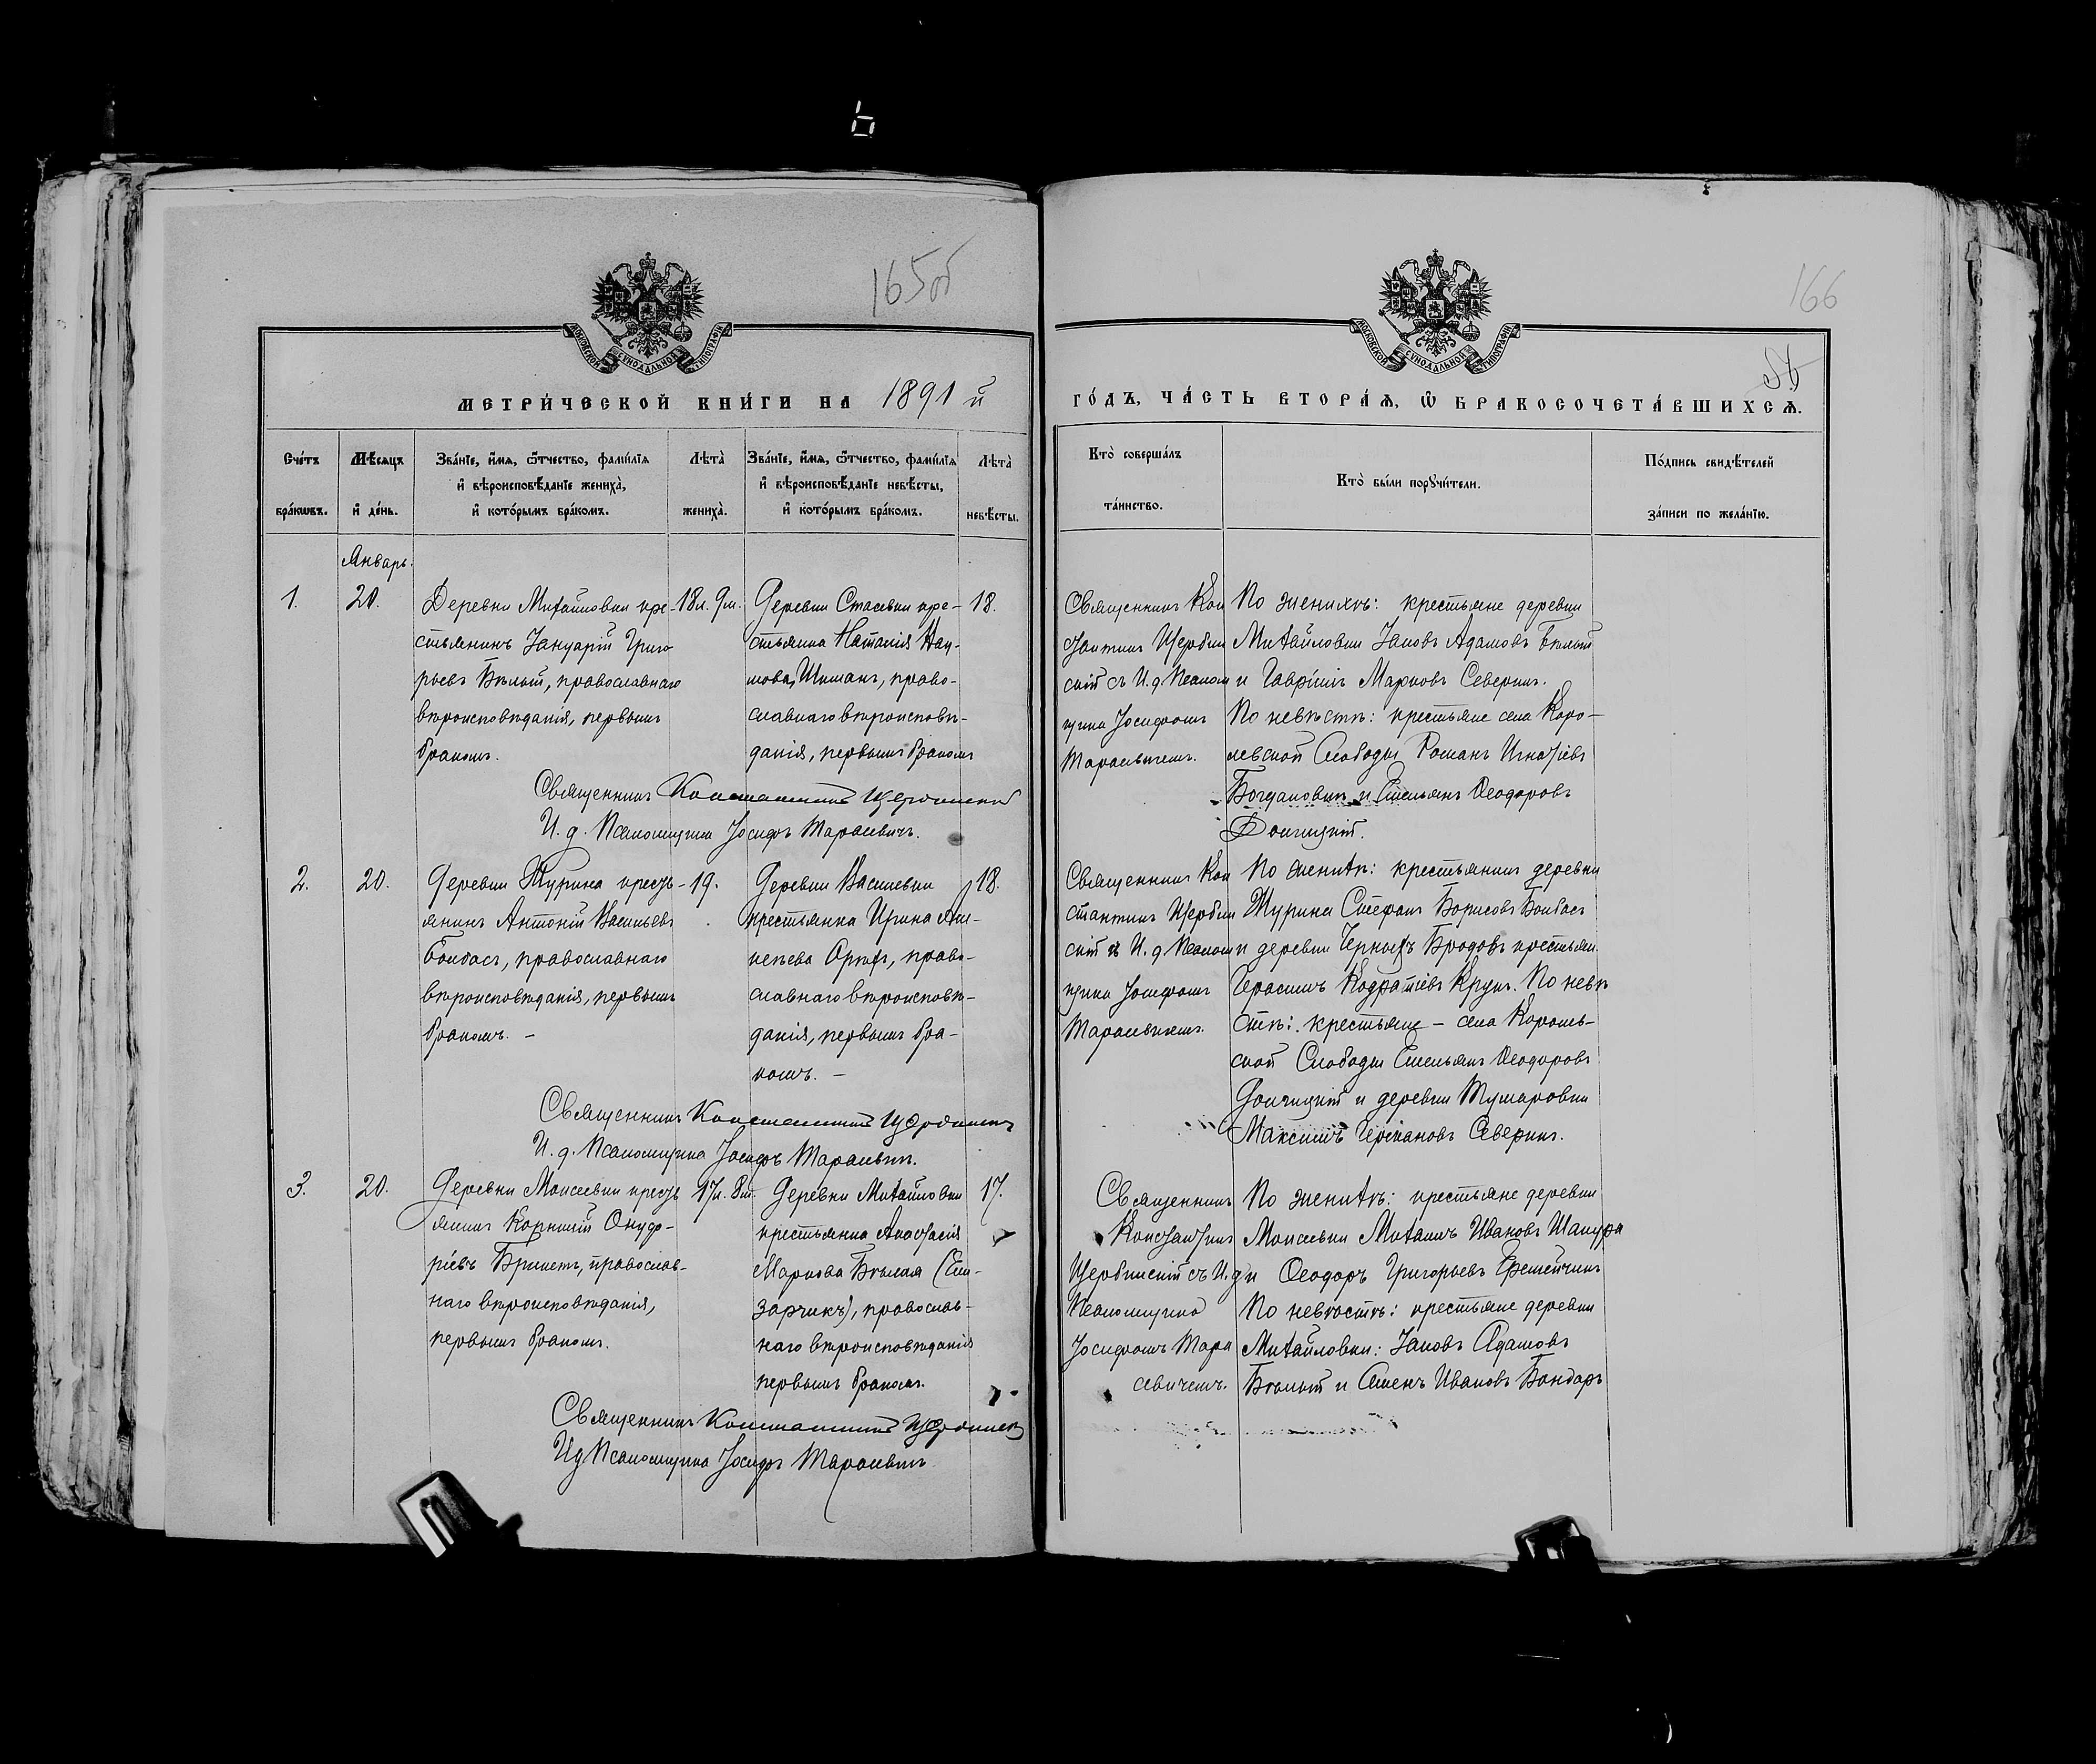 165об
166
МОСКОВСКОЙ СУНОДАЛЬНОЙ ТИПОГРАФІИ
МОСКОВСКОЙ СУНОДАЛЬНОЙ ТИПОГРАФІИ
МЕТРИ́ЧЕСКОЙ КНИ́ГИ НА 1891 й
ГО́ДЪ, ЧА́СТЬ ВТОРА́Ѧ, Ѡ БРАКОСОЧЕТА́ВШИХСѦ.
Сче́тъ бра́кѡвъ.
Мѣ́сяцъ и҆ де́нь.
Зва́нїе, и҆́мѧ, ѻ҆́тчество, фами́лїѧ
и҆ вѣроисповѣ́данїе жениха̀,
и҆ кото́рымъ бра́комъ.
Лѣта̀ жениха̀.
Зва́нїе, и҆́мѧ, ѻ҆́тчество, фами́лїѧ
и҆ вѣроисповѣ́данїе невѣ́сты,
и҆ кото́рымъ бра́комъ.
Лѣта̀ невѣ́сты.
Кто̀ соверша́лъ
та́инство.
Кто̀ бы́ли порꙋчи́тели.
По́дпись свидѣ́телей
за́писи по жела́нїю.
Январь.
1.
20.
Деревни Михайловки кре-
стьянинъ Іануарій Григо
рьевъ Бѣлый, православнаго
вѣроисповѣданія, первымъ
бракомъ.
18л. 9м.
Деревни Стасевки кре-
стьянка Наталія Нау-
мова Шиманъ, право-
славнаго вѣроисповѣ-
данія, первымъ бракомъ
18.
Священникъ Кон
стантинъ Щербин
скій съ И.д. Псалом
щика Іосифомъ
Тарасевичемъ.
По женихѣ: крестьяне деревни
Михайловки Іаковъ Адамовъ Бѣлый
и Гавріилъ Марковъ Северинъ.
По невѣстѣ: крестьяне села Коро-
левской Слободы Романъ Игнатіевъ
Богдановичъ и Емельянъ Ѳеодоровъ
Долгицкій.
Священникъ Константинъ Щербинскій
И. д. Псаломщика Іосифъ Тарасевичъ.
2.
20.
Деревни Журина кресть-
янинъ Антоній Васильевъ
Болбасъ, православнаго
вѣроисповѣданія, первымъ
бракомъ. -
19.
Деревни Василевки
крестьянка Ирина Али-
славнаго вѣроисповѣ-
данія, первымъ бра-
комъ. -
18.
Священникъ Кон
стантинъ Щербин
скій и И. д Псалом
щика Іосифомъ
Тарасевичемъ.
По женихѣ: крестьянинъ деревни
Журина Стефанъ Борисовъ Болбасъ
и деревни Черныхъ Бродовъ крестьян.
Герасимъ Кодратіевъ Крукъ. По невѣ
стѣ: крестьяне - села Королев-
ской Слободы Емельянъ Ѳеодоровъ
Долгицкій и деревни Тумаровки
Максимъ Германовъ Северинъ.
Священникъ Константинъ Щербинскій
И. д. Псаломщика Іосифъ Тарасевичъ.
3.
20.
Деревни Моисеевки кресть
янинъ Корнилій Онуф-
ріевъ Брилетъ, православ-
наго вѣроисповѣданія,
первымъ бракомъ.
17л. 8м.
Деревни Михайловки
крестьянка Анастасія
Маркова Бѣлая (Ели-
зарчикъ), православ-
наго вѣроисповѣданія
первымъ бракомъ.
17.
Священникъ
Константинъ
Щербинскій съ И.д
Псаломщика
Іосифомъ Тара
севичемъ.
По женихѣ: крестьяне деревни
Моисеевки Михаилъ Ивановъ Шапура
и Ѳеодоръ Григорьевъ
По невѣстѣ: крестьяне деревни
Михайловки: Іаковъ Адамовъ
Бѣлый и Семенъ Ивановъ Бондарь
Священникъ Константинъ Щербинскій
И д Псаломщика Іосифъ Тарасевичъ